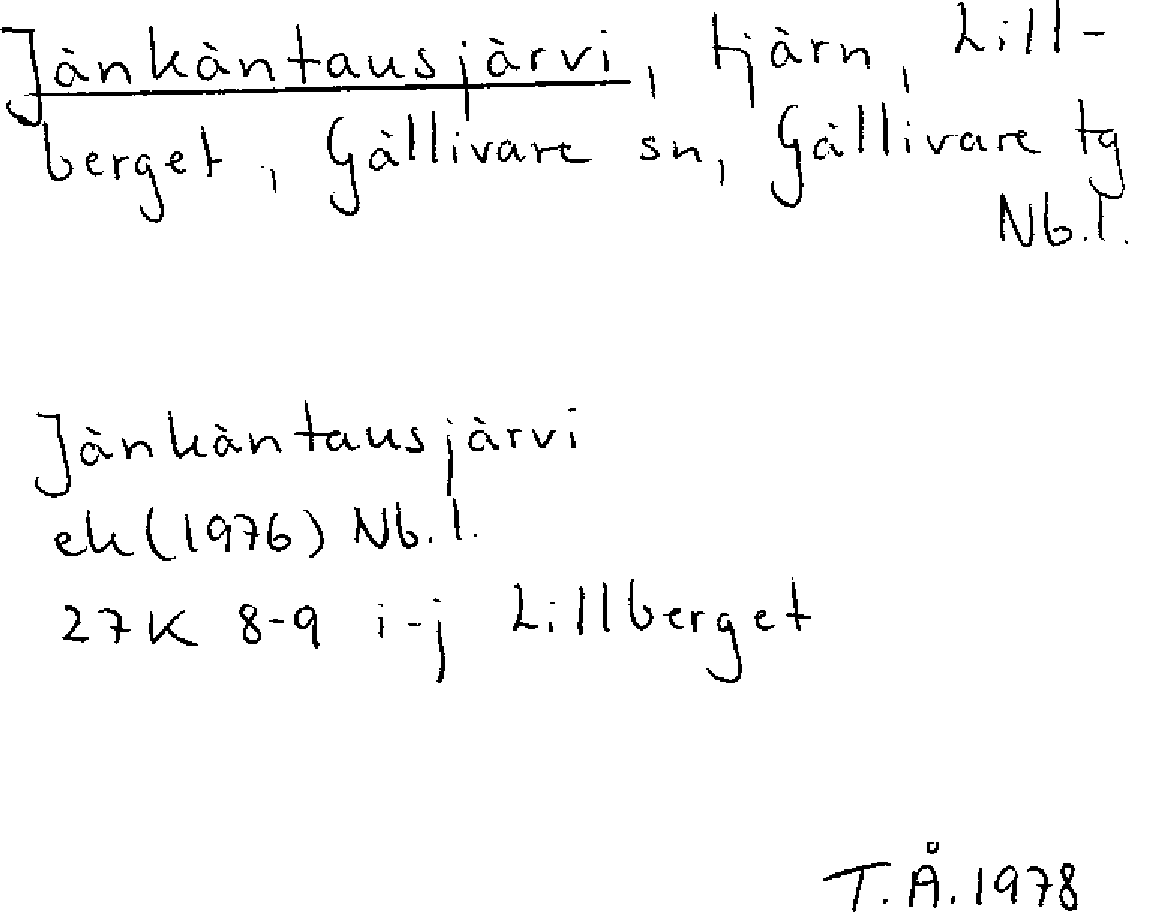 Jänkäntausjärvi, tjärn, Lill-
berget, Gällivare sn, Gällivare tg
Nb.l.
Jänkäntausjärvi
ek (1976) Nb.l.
27K 8-9 i-j Lillberget
T.Å.1978